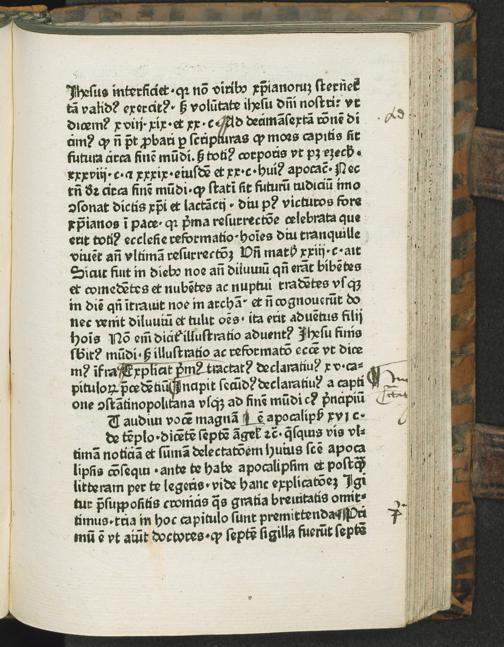 Jhesus interficiet · qꝛ nō viribꝰ xp̄ianoruꝫ sternet̄
tā validꝰ exercitꝰ · ꝫ volūtate ihesu dn̄i nostri: vt
dicemꝰ xviij · xix · et xx · c · Ad decimāsextā cōuē di
cimꝰ ꝙ n̄ pt̄ ꝓbari ꝑ scripturas ꝙ mors capitis sit
futura circa finē mūdi · ꝫ totiꝰ corporis vt pꝫ ezech ·
xxxviij · c · ⁊ xxxix · eiusdē et xx · c · huiꝰ apocać · Nec
tn̄ dꝛ circa finē mūdi · ꝙ stati fit futurū iudiciū imo
ꝯsonat dictis xp̄i et lactācij · diu pꝰ victuros fore
xp̄ianos i pace · qꝛ p̄ma resurrectōe celebrata que
erit totiꝰ ecclesie reformatio · hoīes diu tranquille
viuēt an̄ vltimā resurrectōꝫ Vn̄ math̄ xxiij · c · ait
Sicut fiut in diebꝰ noe an̄ diluuiū qn̄ erāt bibētes
et comedētes et nubētes ac nuptui tradētes vsqꝫ
in diē qn̄ ītrauit noe in archā · et n̄ cognouerūt do
nec venit diluuiū et tulit oēs · ita erit aduētus filij
hoīs No eīn dicit̄ illustratio aduentꝰ Jhesu finis
mūdi · ꝫ illustratio ac reformatō ecc̄e vt dice
mꝰ īfra Explicit p̄mꝰ tractatꝰ declaratiuꝰ xv · ca ·
pitulorꝝ p̄cedētiū Incipit secūdꝰ declaratiuꝰ a capti
one ꝯstātinopolitana vsqꝫ ad finē mūdi cꝰ p̄ncipiū
T audiui vocē magnā ē apocalip̄ xvi c ·
de tēplo · dicētē septē āgeł ⁊c̄ · q̄squis vis vl ·
timā noticiā et sūmā delectatōem huius sc̄e apoca
lipsis cōsequi · ante te habe apocalipsim et postqꝫ̄
litteram per te legeris · vide hanc explicatōeꝫ Igi
tur p̄suppositis cronicis q̄s gratia breuitatis omit ·
timus · tria in hoc capitulo sunt premittenda Pri
mū ē vt aiūt doctores · ꝙ septē sigilla fuerūt septē